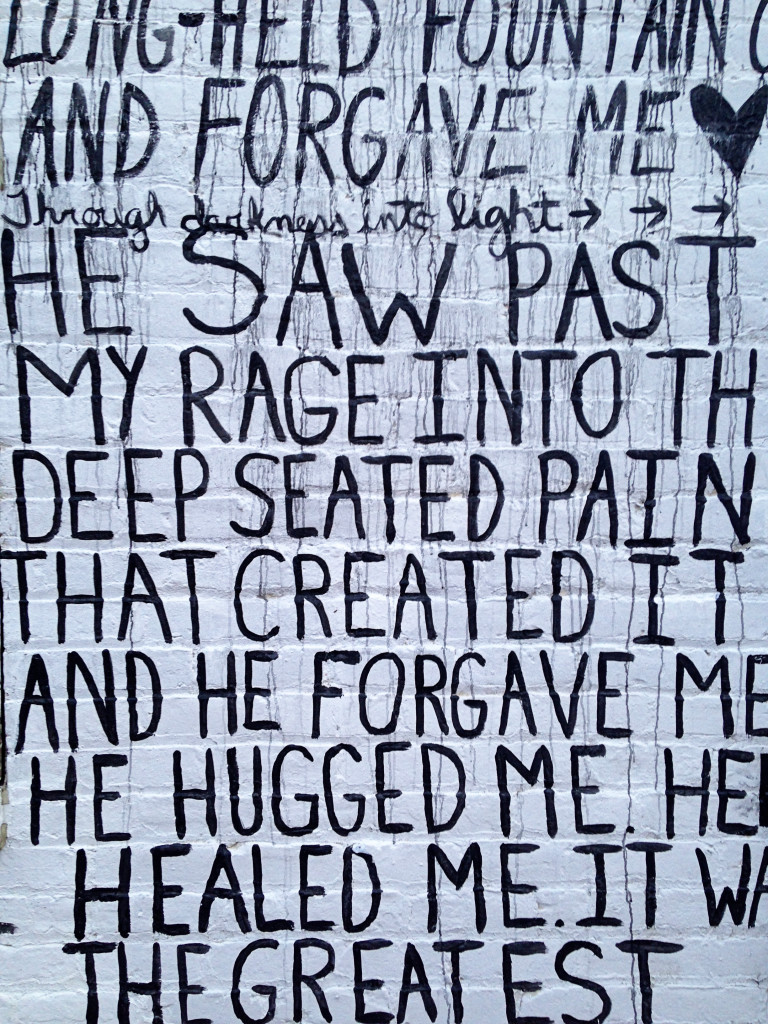 LONG-HELD FOUNTAIN O
AND FORGAVE ME ♥
Through darkness into light → → →
HE SAW PAST
MY RAGE INTO TH
DEEP SEATED PAIN
THAT CREATED IT
AND HE FORGAVE ME
HE HUGGED ME. HE
HEALED ME. IT WA
THE GREATEST